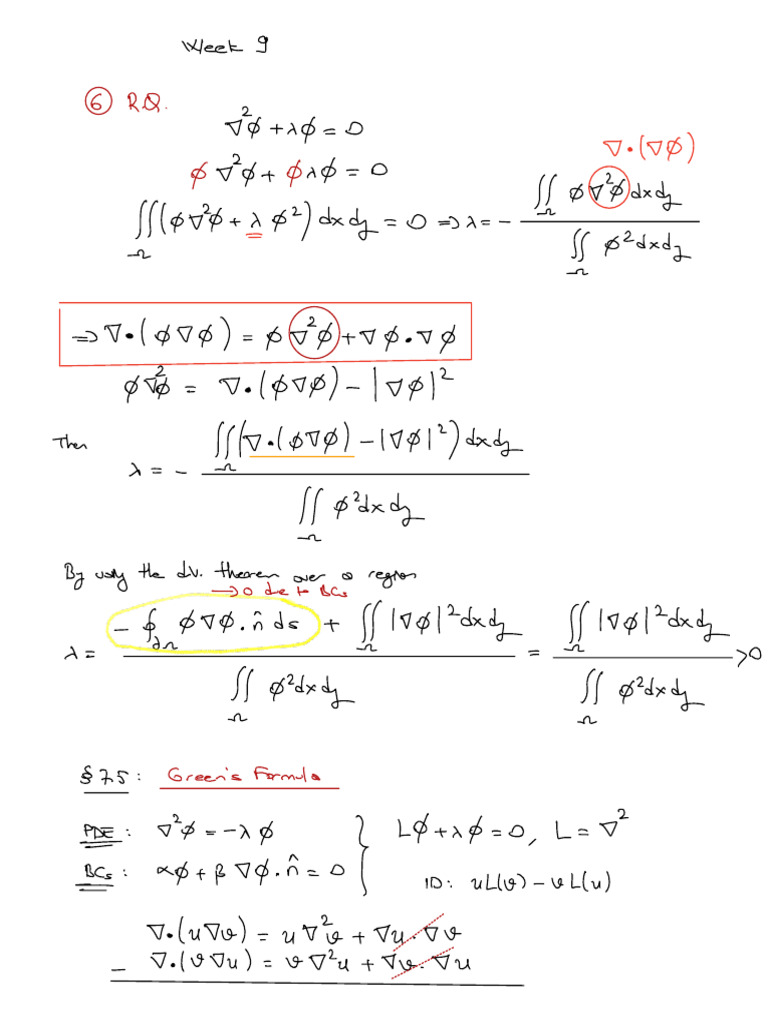 Week 9
⑥ R.Q.
∇²φ + λφ = 0
φ∇²φ + φλφ = 0
∇·(∇φ)
∬_Ω (φ∇²φ + λφ²) dxdy = 0 ⇒ λ = − ∬_Ω φ∇²φ dxdy / ∬_Ω φ² dxdy
⇒ ∇·(φ∇φ) = φ∇²φ + ∇φ·∇φ
φ∇²φ = ∇·(φ∇φ) − |∇φ|²
Then λ = − ∬_Ω (∇·(φ∇φ) − |∇φ|²) dxdy / ∬_Ω φ² dxdy
By using the div. theorem over a region
→ 0 due to BCs
λ = (− ∮_∂Ω φ∇φ·n̂ ds + ∬_Ω |∇φ|² dxdy) / ∬_Ω φ² dxdy = ∬_Ω |∇φ|² dxdy / ∬_Ω φ² dxdy > 0
§ 7.5 : Green's Formula
PDE : ∇²φ = −λφ } Lφ + λφ = 0, L = ∇²
BCs : αφ + β∇φ·n̂ = 0 } ID: uL(v) − vL(u)
∇·(u∇v) = u∇²v + ∇u·∇v
− ∇·(v∇u) = v∇²u + ∇v·∇u